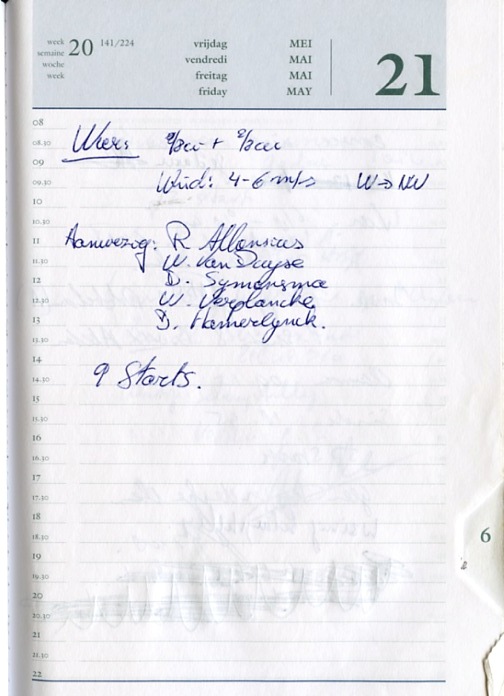 week 20 141/224 vrijdag MEI 21
semaine vendredi MAI
woche freitag MAI
week friday MAY
08
08.30 Weer:
09
09.30 Wind: 4-6 m/s W → NW
10
10.30
11 Aanwezig: R. Allonsius
11.30 W. Van Duyse
12 D. Symonsma
12.30 W. Verplancke
13 D. Hamerlynck.
13.30
14
14.30 9 Starts.
15
15.30
16
16.30
17
17.30
18
18.30
19
19.30
20
20.30
21
21.30
22
6